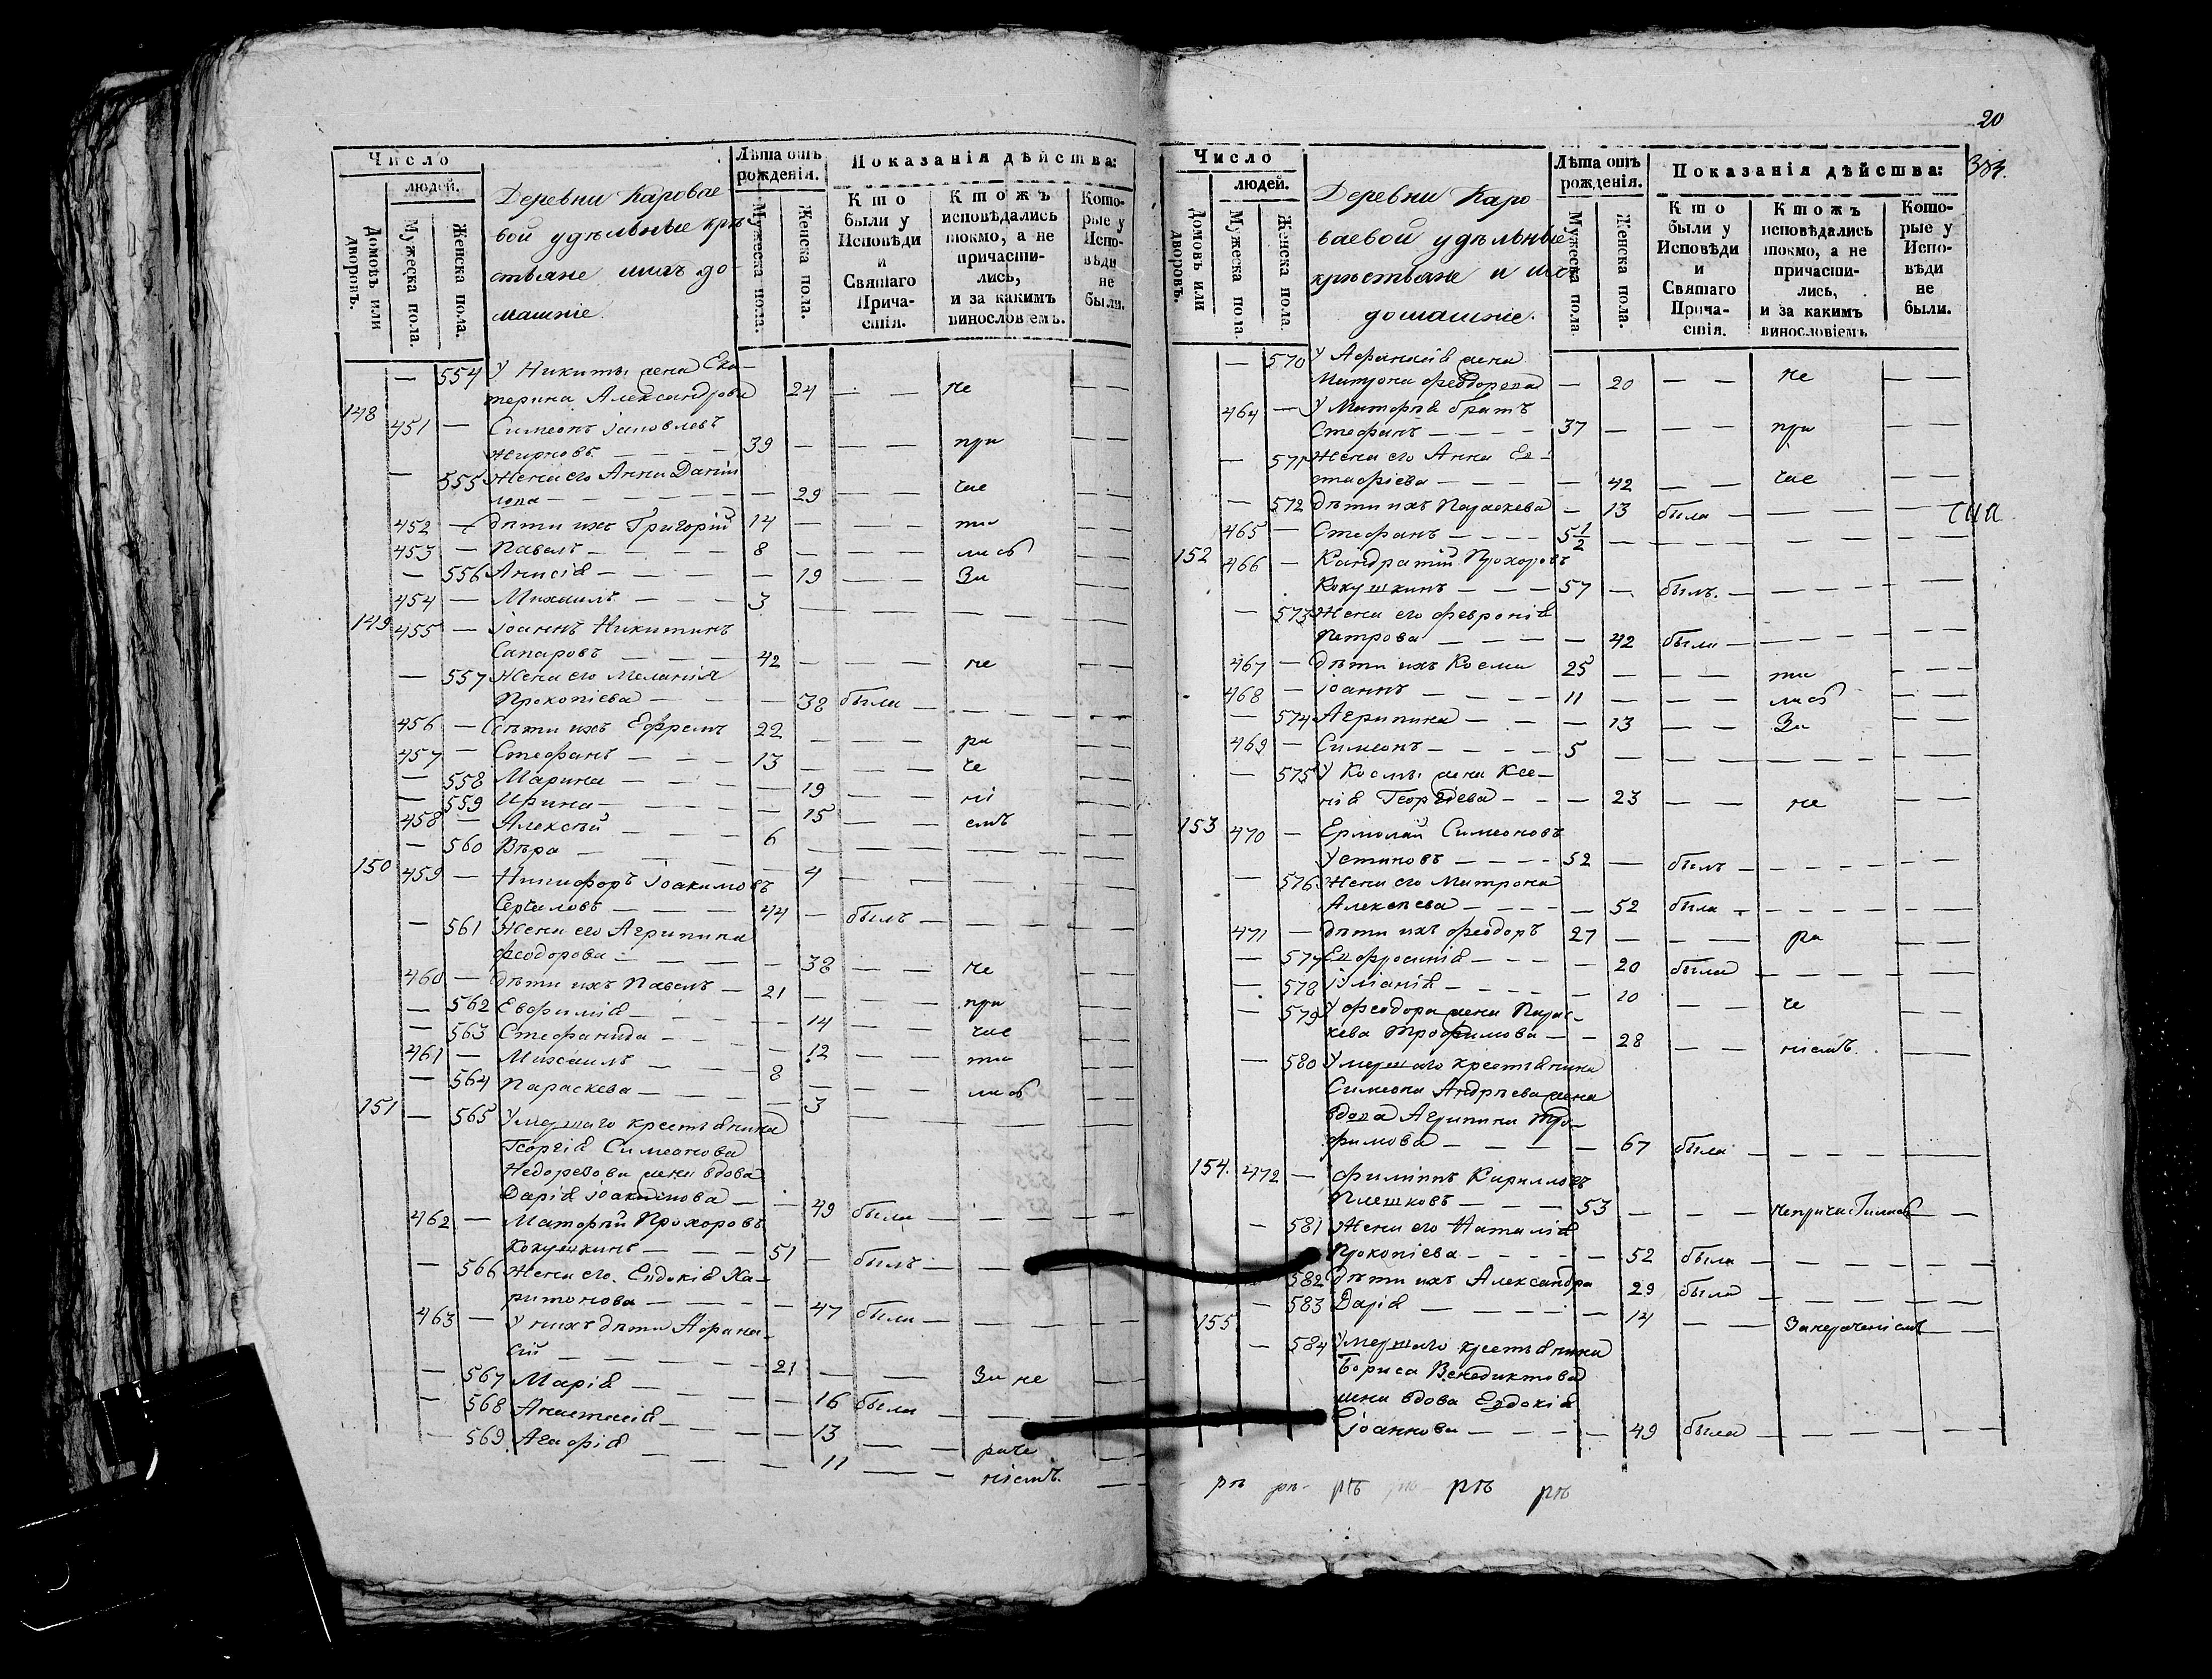 Число
людей.
Домовъ или дворовъ.
Мужеска пола.
Женска пола.
Деревни Каровае
вой удѣльные крѣ
стьяне ихъ до
машніе.
Лѣта отъ рожденія.
Мужеска пола.
Женска пола.
Показанія дѣйства:
Кто были у Исповѣди и Святаго Причастія.
Ктожъ исповѣдались токмо, а не причастились, и за какимъ винословіемъ.
Которые у Исповѣди не были.
— 554 У Никиты жена Ека-
терина Александрова 24 — — не — —
148 451 — Симеонъ Іаковлевъ
Жирновъ — — — 39 — — — при — —
— 555 Жена его Анна Даніи
лова — — — — 29 — — час — —
452 — дѣти ихъ Григорій 14 — — — ти — —
453 — Павелъ — — — 8 — — — лись — —
— 556 Анисія — — — — 19 — — За — —
454 — Михаилъ — — 3 — — — — — —
149 455 — Іоаннъ Никитинъ
Сапаровъ — — — 42 — — — не — —
— 557 Жена его Меланія
Прокопіева — — — 38 была — — — — —
456 — дѣти ихъ Ефремъ 22 — — — ра — —
457 — Стефанъ — — — 13 — — — че — —
— 558 Марина — — — — 19 — — ні — —
— 559 Ирина — — — — 15 — — емъ — —
458 — Алексѣй — — — 6 — — — — — —
— 560 Вѣра — — — — 4 — — — — —
150 459 — Никифоръ Іоакимовъ
— — — 44 — былъ — — — —
— 561 Жена его Агрипина
Феодорова — — — — 38 — — не — —
460 — дѣти ихъ Павелъ — 21 — — — при — —
— 562 Евфимія — — — 14 — — час — —
— 563 Стефанида — — — 12 — — ти — —
461 — Михаилъ — — — 8 — — — лись — —
— 564 Параскева — — — — 3 — — — — —
151 — 565 Умершаго крестьянина
Георгія Симеонова
жена вдова
Дарія Іоакимова — — 49 была — — — — —
462 — Матфѣй Прохоровъ
Кокушкинъ — — — 51 — былъ — —
— 566 Жена его Евдокія Ха-
ритонова — — — — 47 была — — — — —
463 — У нихъ дѣти Афана-
сій — — — — 21 — — — За не — —
— 567 Марія — — — — 16 была — — —
— 568 Анастасія — — — — 13 — — раче —
— 569 Агафія — — — — 11 — — ніемъ. — —
20
384.
Число
людей.
Домовъ или дворовъ.
Мужеска пола
Женска пола.
Деревни Каро
ваевой удѣльные
крѣстьяне и ихъ
домашніе.
Лѣта отъ рожденія.
Мужеска пола
Женска пола.
Показанія дѣйства:
Кто были у Исповѣди и Святаго Причастія.
Ктожъ исповѣдались токмо, а не причастились, и за какимъ винословіемъ.
Которые у Исповѣди не были.
— 570 У Афанасія жена
Матрона Феодорова — 20 — — не — —
464 — У Матфѣя братъ
Стефанъ — — — — 37 — — — при — —
— 571 Жена его Анна Ев-
стафіева — — — — 42 — — час — —
— 572 дѣти ихъ Параскева — 13 была — — — —
465 — Стефанъ — — — — 5 1/2 — — — — — — —
152 466 — Кандратій Прохоровъ
Кокушкинъ — — — 57 — былъ. — — — — —
— 573 Жена его Февронія
Петрова — — — — 42 была — — — — —
467 — дѣти ихъ Косма 25 — — — ти — —
468 — Іоаннъ — — — — 11 — — — лись — —
— 574 Агрипина — — — 13 — — За — —
469 — Симеонъ — — — — 5 — — — — — —
— 575 У Космы жена Ксе-
нія Георгіева — — — 23 — — не — —
153 470 — Ермолай Симеоновъ
Устиновъ — — — — 52 — былъ — — — — —
— 576 Жена его Матрона
Алексѣева — — — — 52 была — — — — —
471 — дѣти ихъ Феодоръ 27 — — — ра — —
— 577 Евфросинія — — — — 20 была — — — —
— 578 — — — — 10 — — че — —
— 579 У Феодора жена Парас-
кева Трофимова — — 28 — — ніемъ. — —
— 580 Умершаго крестьянина
Симеона Андрѣева жена
вдова Агрипина Тро-
фимова — — — — 67 была — — — — —
154. 472 — Филиппъ Кирилловъ
Плешковъ — — — 53 — — — непричастились — —
— 581 Жена его Наталія
Прокопіева — — — — 52 была — — — — —
582 дѣти ихъ Александра 29 была — — — — —
— 583 Дарія — — — — 14 — — Занераченіемъ — —
155 — 584 Умершаго крестьянина
Бориса Венедиктова
жена вдова Евдокія
Іоаннова — — — — 49 была — — — — —
рѣ рѣ рѣ рѣ рѣ рѣ